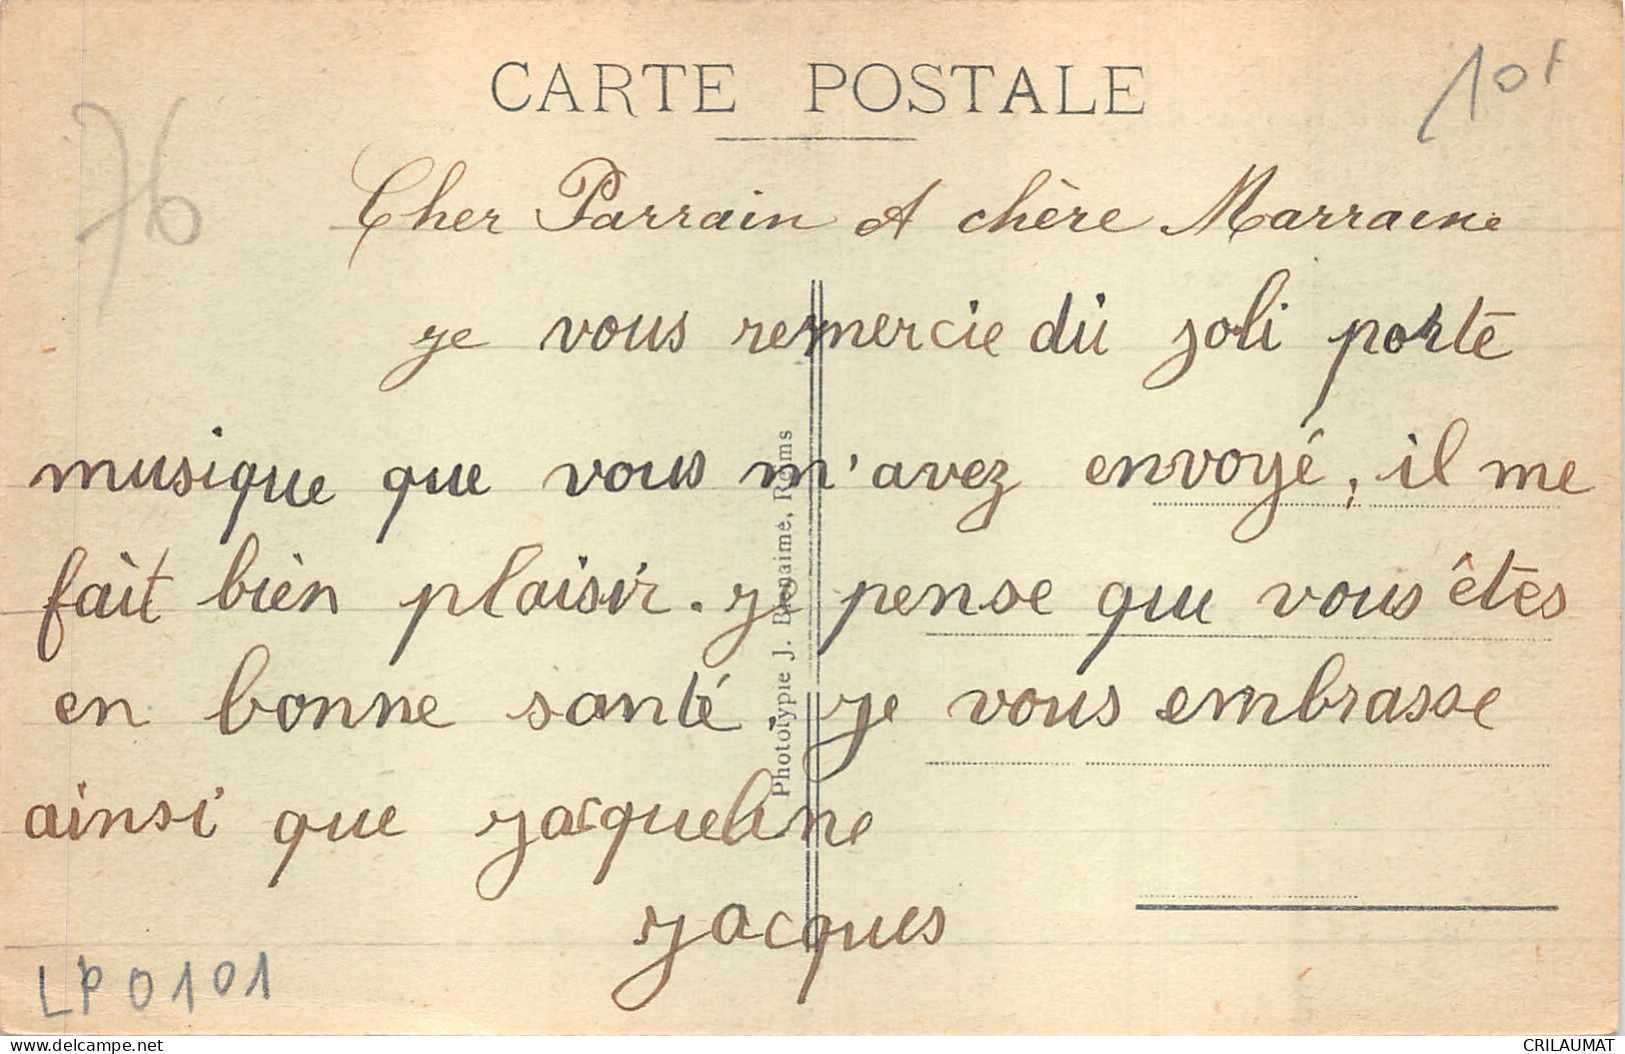 CARTE POSTALE
10F
76
Cher Parrain et chère Marraine
je vous remercie du joli porte
musique que vous m'avez envoyé, il me
fait bien plaisir. je pense que vous êtes
en bonne santé. je vous embrasse
ainsi que jacqueline
jacques
Phototypie J. Bienaimé, Reims
LP0101
www.delcampe.net
CRILAUMAT